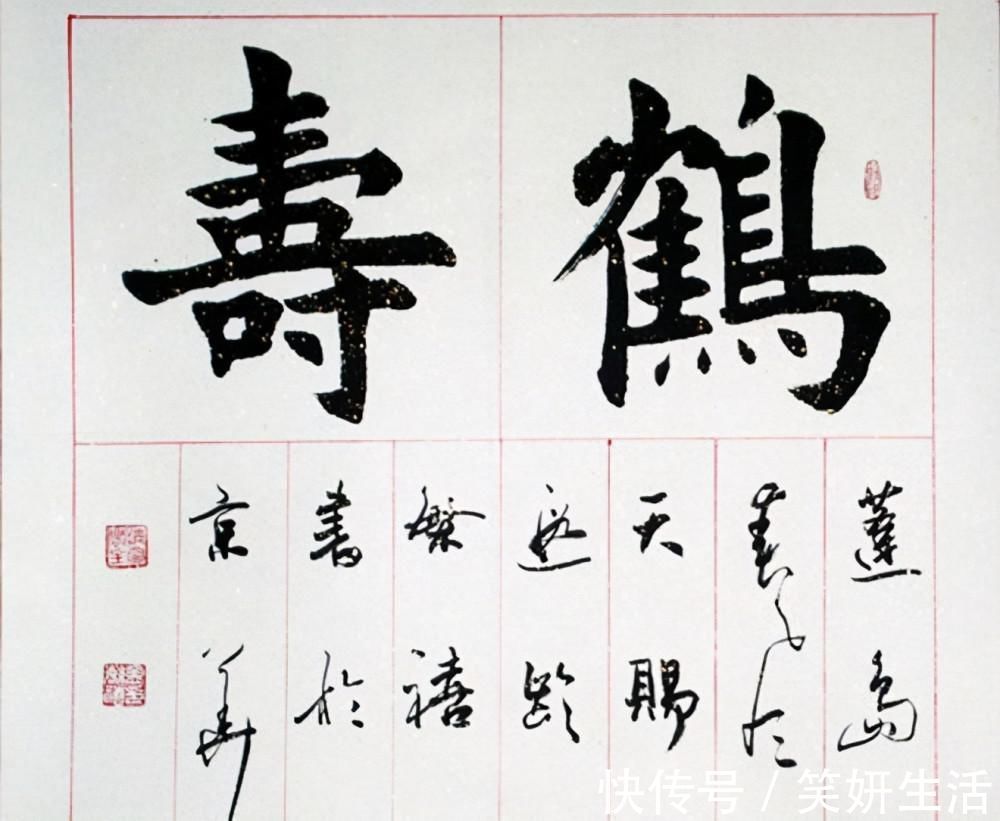 鶴壽
蓬島
天賜
遐齡
繁禧
書於
京華
快传号 / 笑妍生活